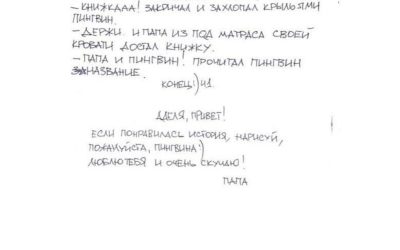 – КНИЖКААА! ЗАКРИЧАЛ И ЗАХЛОПАЛ КРЫЛЬЯМИ
ПИНГВИН.
– ДЕРЖИ. И ПАПА ИЗ ПОД МАТРАСА СВОЕЙ
КРОВАТИ ДОСТАЛ КНИЖКУ.
– ПАПА И ПИНГВИН! ПРОЧИТАЛ ПИНГВИН
НАЗВАНИЕ.
КОНЕЦ:) Ч1
АДЕЛЯ, ПРИВЕТ!
ЕСЛИ ПОНРАВИЛАСЬ ИСТОРИЯ, НАРИСУЙ,
ПОЖАЛУЙСТА, ПИНГВИНА:)
ЛЮБЛЮ ТЕБЯ И ОЧЕНЬ СКУЧАЮ!
ПАПА